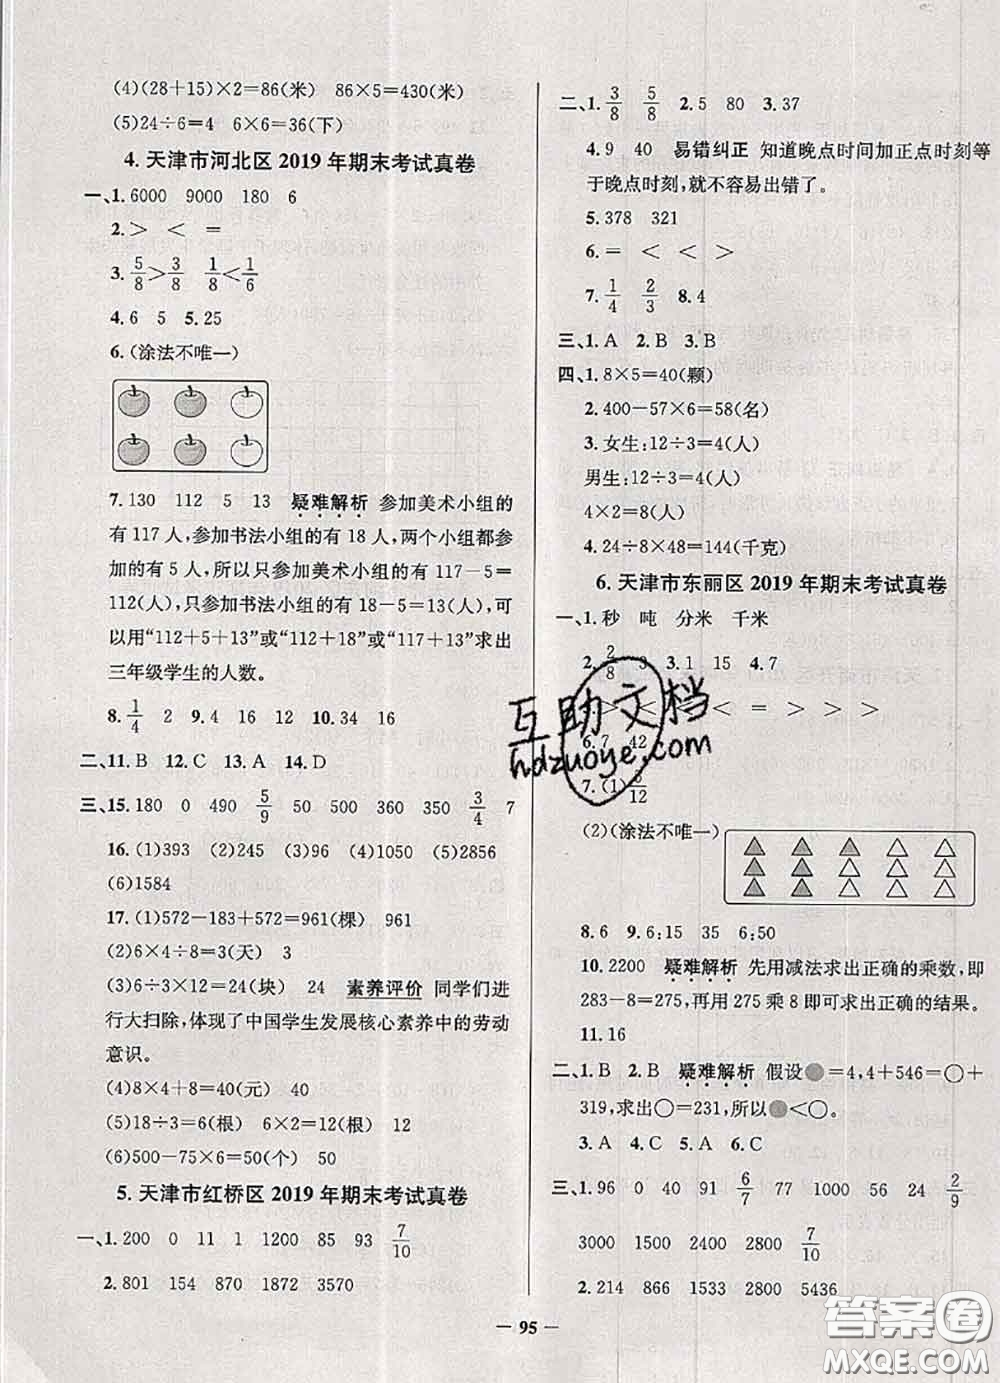 (4)(28+15)×2=86(米)　86×5=430(米)
(5)24÷6=4　6×6=36(下)
4. 天津市河北区 2019 年期末考试真卷
一、1. 6000　9000　180　6
2. >　<　=
3. 5/8>3/8　1/8<1/6
4. 6　5　5. 25
6. (涂法不唯一)
7. 130　112　5　13　疑难解析　参加美术小组的
有 117 人，参加书法小组的有 18 人，两个小组都参
加的有 5 人，所以只参加美术小组的有 117-5=
112(人)，只参加书法小组的有 18-5=13(人)，可
以用“112+5+13”或“112+18”或“117+13”求出
三年级学生的人数。
8. 1/4　2　9. 4　16　12　10. 34　16
二、11. B　12. C　13. A　14. D
三、15. 180　0　490　5/9　50　500　360　350　3/4　7
16. (1)393　(2)245　(3)96　(4)1050　(5)2856
(6)1584
17. (1)572-183+572=961(棵)　961
(2)6×4÷8=3(天)　3
(3)6÷3×12=24(块)　24　素养评价　同学们进
行大扫除，体现了中国学生发展核心素养中的劳动
意识。
(4)8×4+8=40(元)　40
(5)18÷3=6(根)　6×2=12(根)　12
(6)500-75×6=50(个)　50
5. 天津市红桥区 2019 年期末考试真卷
一、1. 200　0　11　1　1200　85　93　7/10
2. 801　154　870　1872　3570
二、1. 3/8　5/8　2. 5　80　3. 37
4. 9　40　易错纠正　知道晚点时间加正点时刻等
于晚点时刻，就不容易出错了。
5. 378　321
6. =　<　<　>
7. 1/4　2/3　8. 4
三、1. A　2. B　3. B
四、1. 8×5=40(颗)
2. 400-57×6=58(名)
3. 女生：12÷3=4(人)
男生：12÷3=4(人)
4×2=8(人)
4. 24÷8×48=144(千克)
6. 天津市东丽区 2019 年期末考试真卷
一、1. 秒　吨　分米　千米
2. 2/8　3　3. 1　15　4. 7
>　<　<　<　=　>　>　>
6. 7　42
7. (1) /12
(2)(涂法不唯一)
8. 6　9. 6:15　35　6:50
10. 2200　疑难解析　先用减法求出正确的乘数，即
283-8=275，再用 275 乘 8 即可求出正确的结果。
11. 16
二、1. B　2. B　疑难解析　假设●=4，4+546=○+
319，求出○=231，所以●<○。
3. A　4. C　5. A　6. C
三、1. 96　0　40　91　6/7　77　1000　56　24　2/9
3000　1500　2400　2800　7/10
2. 214　866　1533　2800　5436
— 95 —
互助文档
hdzuoye.com
答案圈
MXQE.COM